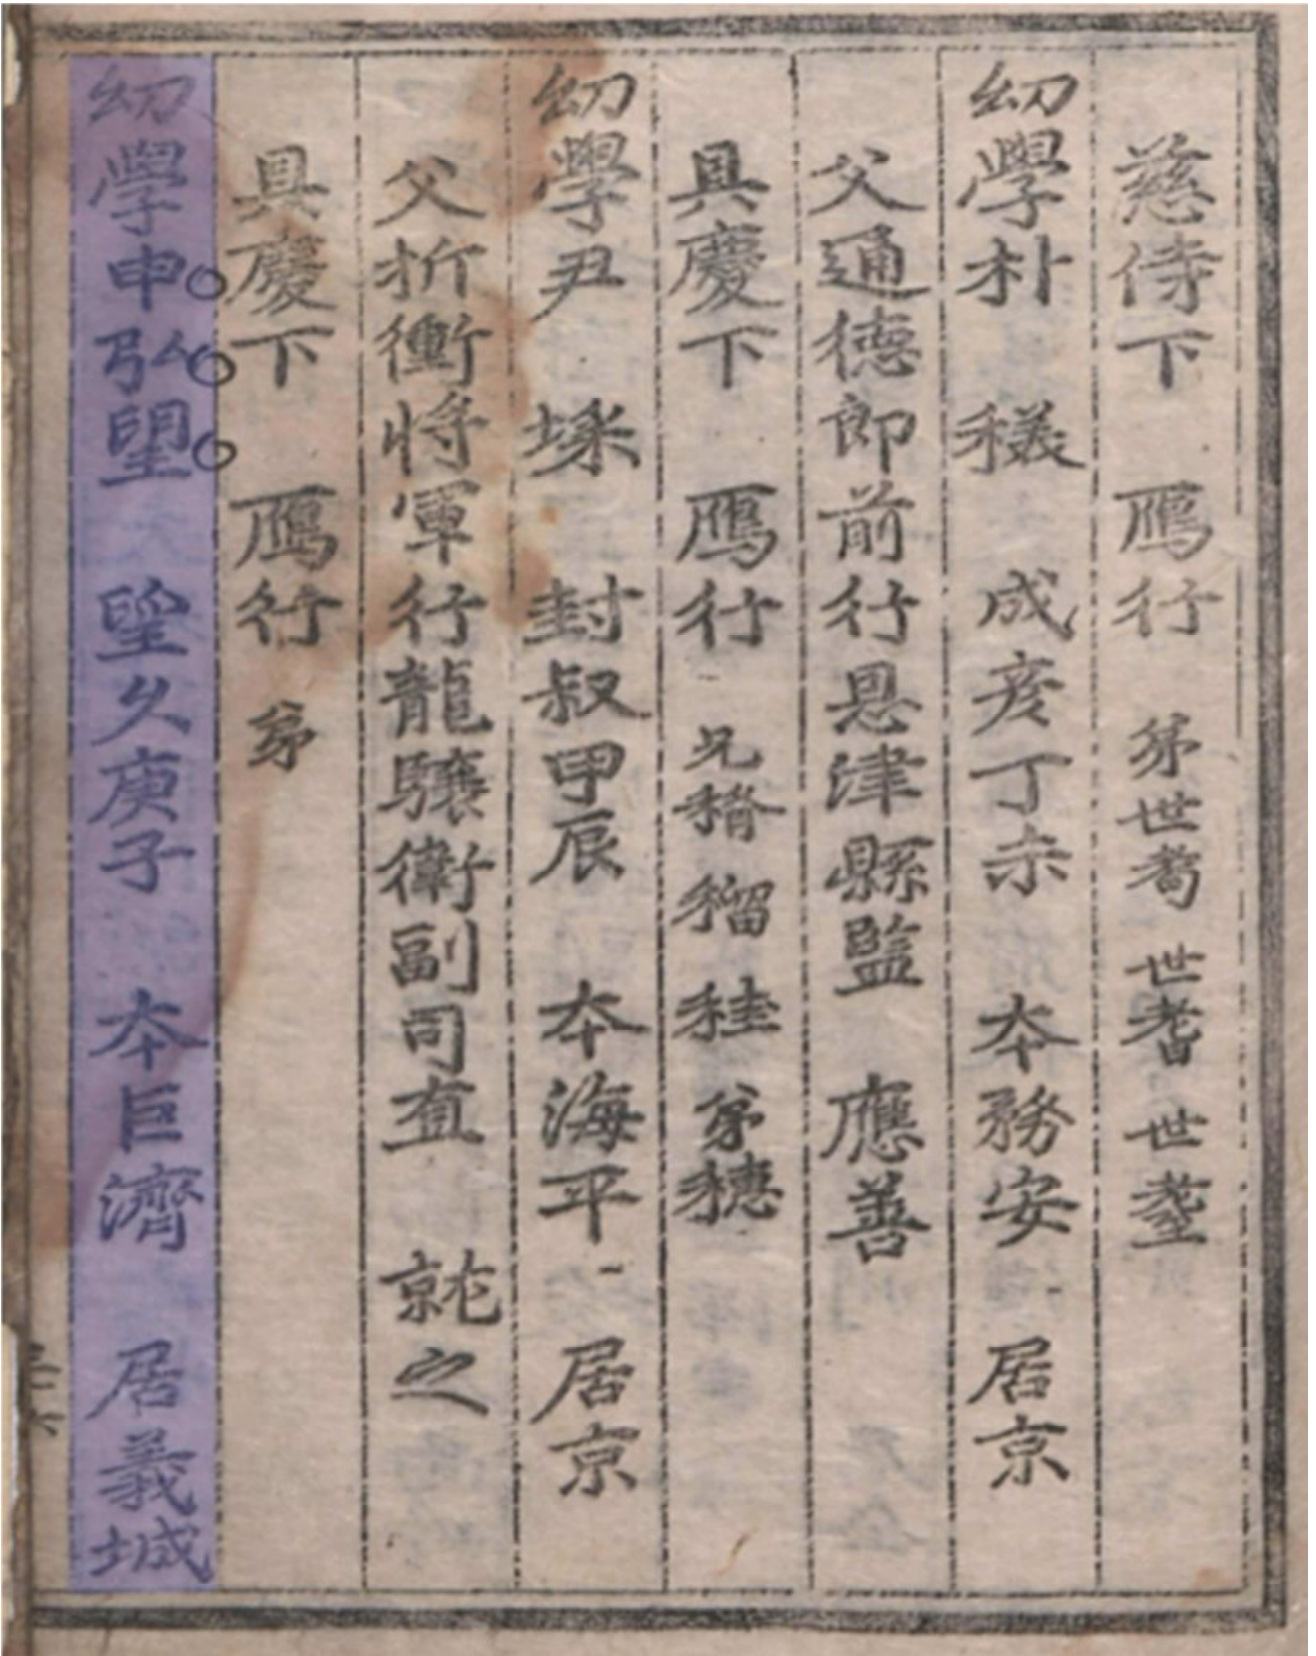 慈侍下 鴈行 弟世耈 世耆 世耋
幼學朴 穖 成彥丁未 本務安 居京
父通德郎前行恩津縣監 應善
具慶下 鴈行 兄稰 穯 䅅 弟穗
幼學尹 埰 封叔甲辰 本海平 居京
父折衝將軍行龍驤衛副司直 就之
具慶下 鴈行 弟
幼學申弘望 望久庚子 本巨濟 居義城